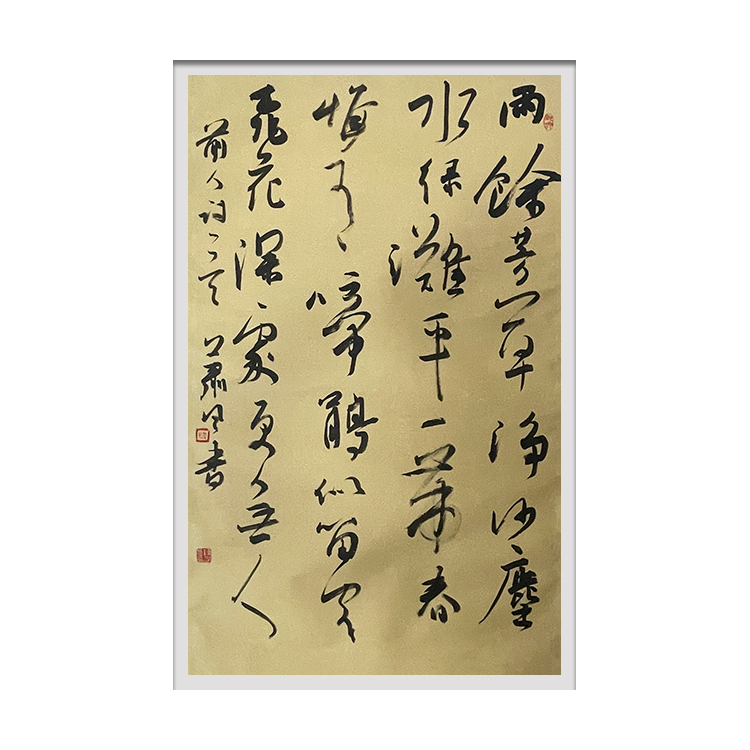 雨餘芳草淨沙塵
水綠灘平一帶春
惟有啼鵑似留客
桃花深處更無人
前人詩一首 書